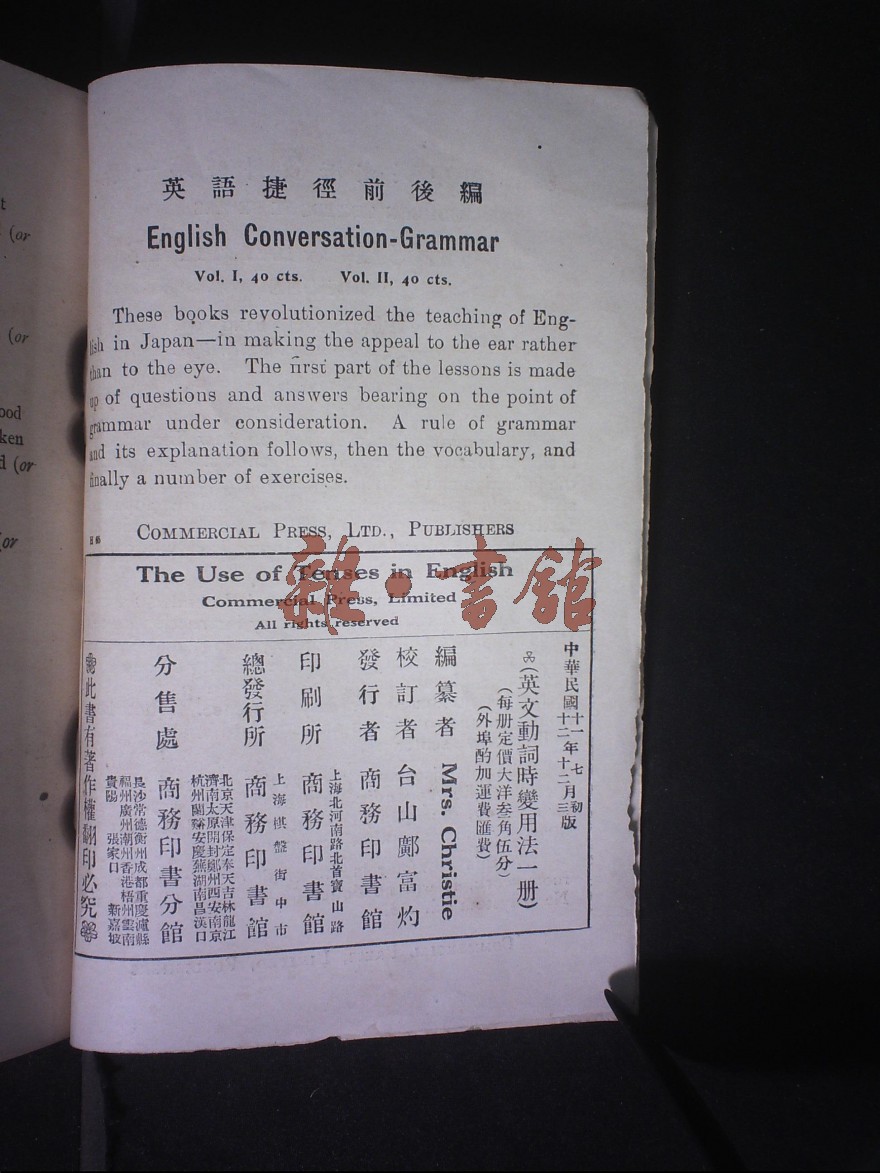 t
(or
(or
ood
ken
d (or
(or
英語捷徑前後編
English Conversation-Grammar
Vol. I, 40 cts. Vol. II, 40 cts.
These books revolutionized the teaching of Eng-
lish in Japan—in making the appeal to the ear rather
than to the eye. The first part of the lessons is made
up of questions and answers bearing on the point of
grammar under consideration. A rule of grammar
and its explanation follows, then the vocabulary, and
finally a number of exercises.
COMMERCIAL PRESS, LTD., PUBLISHERS
The Use of Tenses in English
Commercial Press, Limited
All rights reserved
雜·書館
中華民國十一年七月初版
十二年十二月三版
(英文動詞時變用法一册)
(每册定價大洋叁角伍分)
(外埠酌加運費匯費)
編纂者 Mrs. Christie
校訂者 台山鄺富灼
發行者 商務印書館
印刷所 上海北河南路北首寶山路 商務印書館
總發行所 上海棋盤街中市 商務印書館
分售處 北京天津保定奉天吉林龍江
濟南太原開封鄭州西安南京
杭州蘭谿安慶蕪湖南昌漢口
商務印書分館
長沙常德衡州成都重慶瀘縣
福州廣州潮州香港梧州雲南
貴陽 張家口 新嘉坡
此書有著作權翻印必究